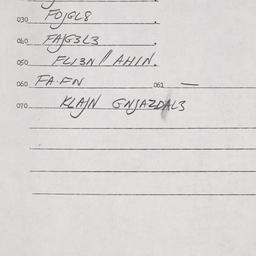 030 FOJGL8
040 FAJG3L3
050 FLI3N // AHIN.
060 FA·FN 061 —
070 KLAJN GNJAZDAL3